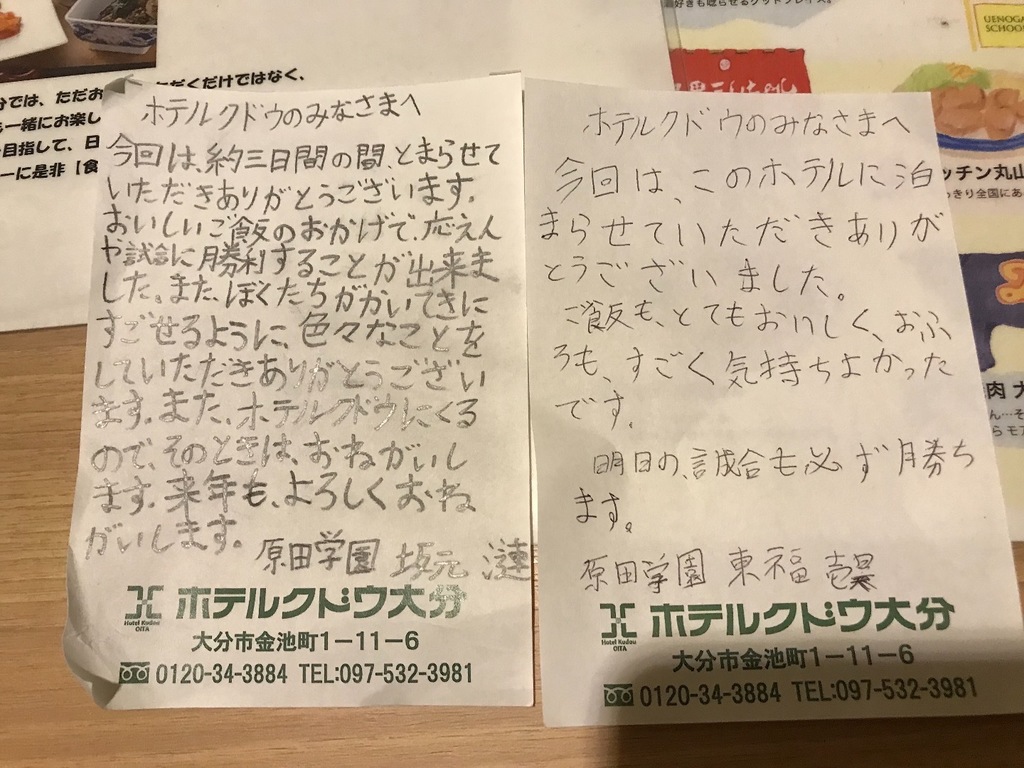 ホテルクドウのみなさまへ
今回は、約三日間の間、とまらせて
いただきありがとうございます。
おいしいご飯のおかげで、応えん
や試合に勝利することが出来ま
した。また、ぼくたちがかいてきに
すごせるように、色々なことを
していただきありがとうござい
ます。また、ホテルクドウにくる
ので、そのときは、おねがいし
ます。来年も、よろしくおね
がいします。
原田学園 坂元 漣
ホテルクドウ大分
Hotel Kudou
OITA
大分市金池町1-11-6
0120-34-3884 TEL:097-532-3981
ホテルクドウのみなさまへ
今回は、このホテルに泊
まらせていただきありが
とうございました。
ご飯も、とてもおいしく、おふ
ろも、すごく気持ちよかった
です。
明日の、試合も必ず勝ち
ます。
原田学園 東福
ホテルクドウ大分
Hotel Kudou
OITA
大分市金池町1-11-6
0120-34-3884 TEL:097-532-3981
分では、ただお
だくだけではなく、
一緒にお楽し
目指して、日
ーに是非【食
好きも唸らせるグッドプレイス。
UENOGA
SCHOO
ッチン丸山
っきり全国にあ
肉
ん…そ
らモア